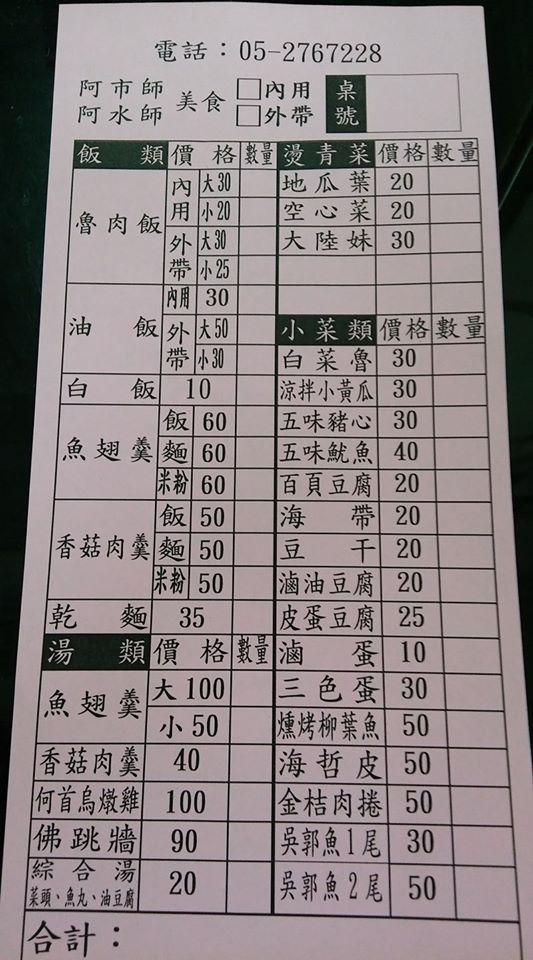 電話：05-2767228
阿市師 美食 □內用 桌號
阿水師 □外帶
飯類 價格 數量
魯肉飯 內用 大30
小20
外帶 大30
小25
油飯 內用 30
外帶 大50
小30
白飯 10
魚翅羹 飯 60
麵 60
米粉 60
香菇肉羹 飯 50
麵 50
米粉 50
乾麵 35
湯類 價格 數量
魚翅羹 大100
小50
香菇肉羹 40
何首烏燉雞 100
佛跳牆 90
綜合湯 20
菜頭、魚丸、油豆腐
燙青菜 價格 數量
地瓜葉 20
空心菜 20
大陸妹 30
小菜類 價格 數量
白菜魯 30
涼拌小黃瓜 30
五味豬心 30
五味魷魚 40
百頁豆腐 20
海帶 20
豆干 20
滷油豆腐 20
皮蛋豆腐 25
滷蛋 10
三色蛋 30
燻烤柳葉魚 50
海哲皮 50
金桔肉捲 50
吳郭魚1尾 30
吳郭魚2尾 50
合計：